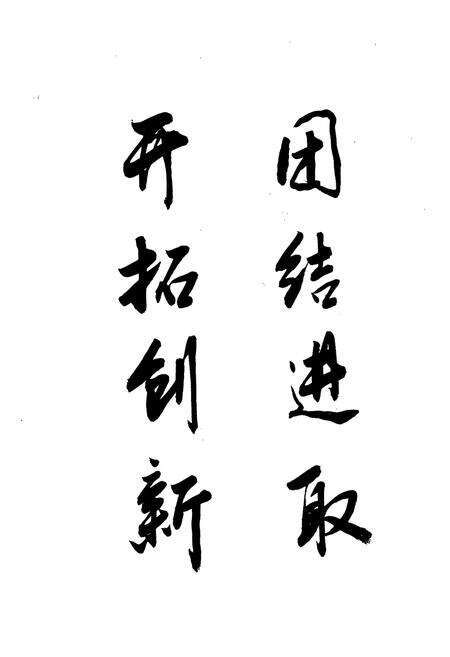 团结进取
开拓创新